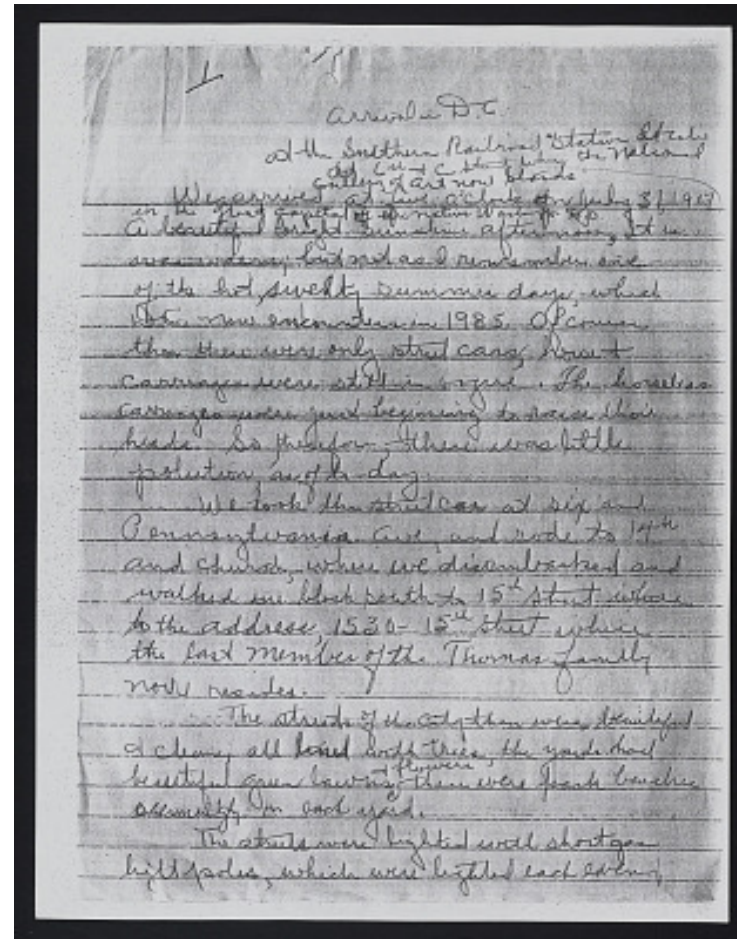 1
Arrival in D.C.
at the Southern Railroad Station
6th and C Street where the National
Gallery of Art now stands
We arrived at five o'clock on July 31, 1907
in the great capital of
a beautiful bright sunshine afternoon, it
was warm, but not as I remember one
of the hot, swelty summer days, which
now encounters in 1985. Of course
then there were only street cars, horse &
carriages were still in vogue. The horseless
carriages were just beginning to raise their
heads. So therefore, there was little
polution, as of to-day.
We took the street car at six and
Pennsylvania Ave, and rode to 14th
and Church, where we disembarked and
walked one block to 15th Street
to the address, 1530-15th Street where
the last member of the Thomas family
now resides.
The streets of the City then were beautiful
& clean, all lined with trees, the yards had
beautiful green lawns & flowers, there were benches
in each yard.
The streets were lighted with short gas
light poles, which were lighted each evening